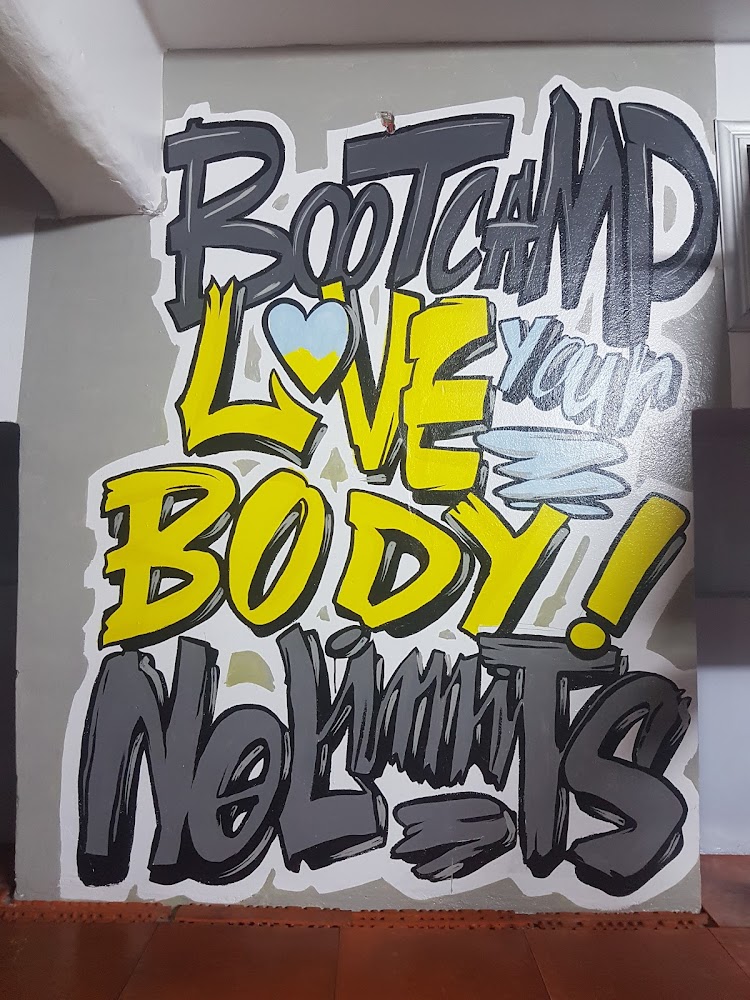 BOOTCAMP
LOVE your
BODY!
No Limits